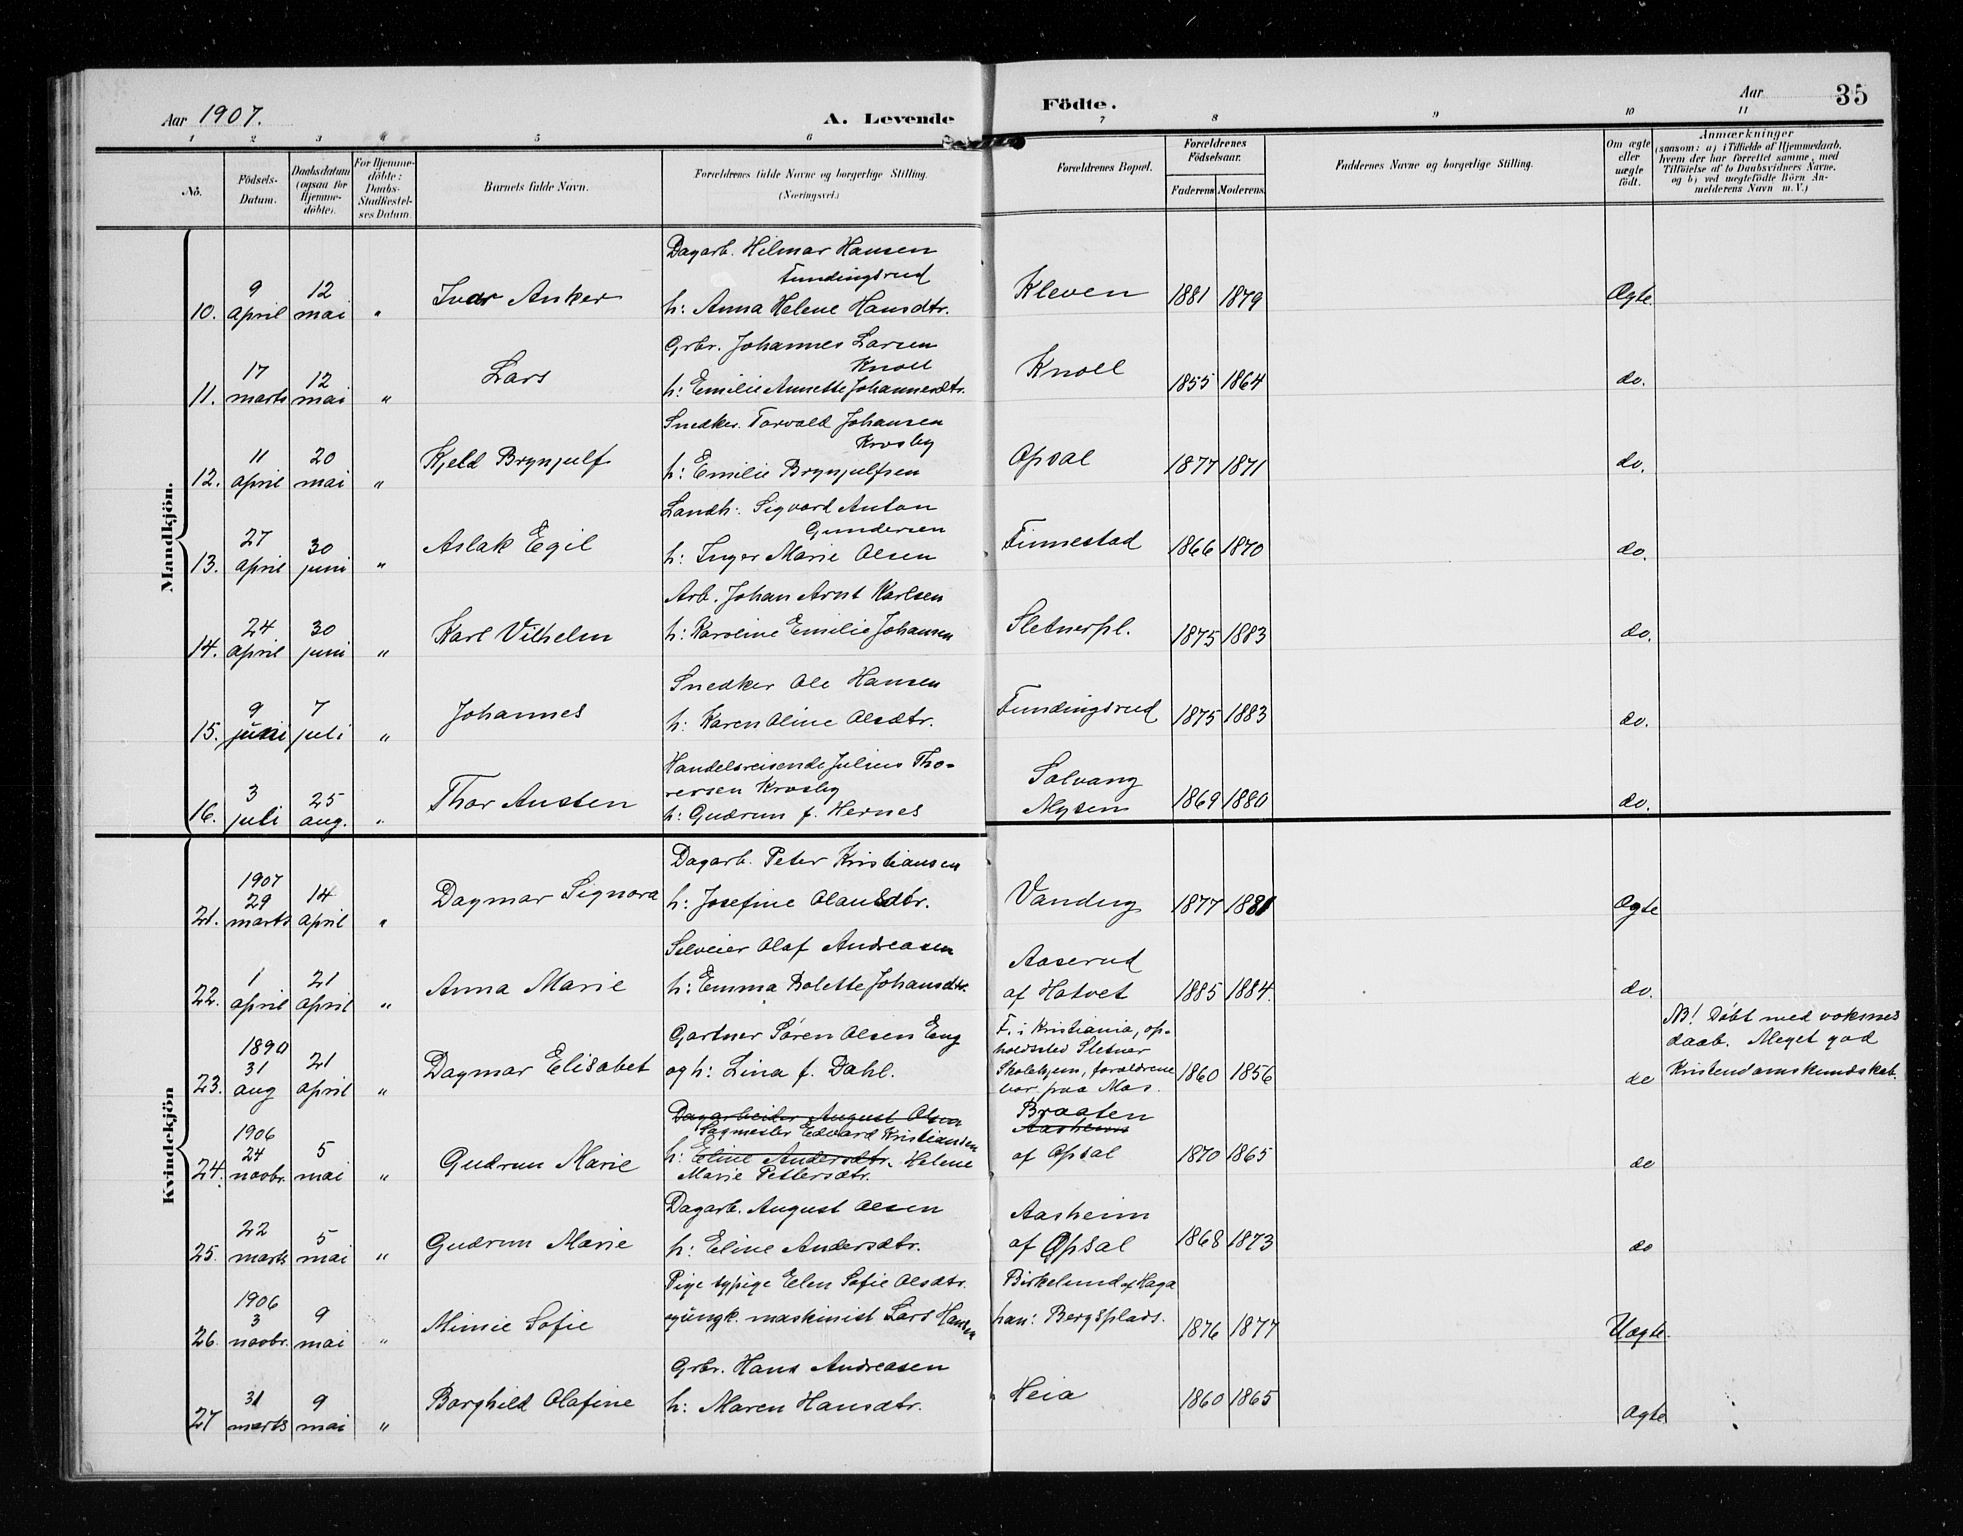 Aar 1907. A. Levende Födte. Aar 35
1 2 3 4 5 6 7 8 9 10 11
No. Födsels-Datum. Daabsdatum (ogsaa for Hjemmedöbte). For Hjemmedöbte: Daabs-Stadfæstelses Datum. Barnets fulde Navn. Forældrenes fulde Navne og borgerlige Stilling. (Næringsvei.) Forældrenes Bopæl. Forældrenes Födselsaar. Faderens Moderens. Faddernes Navne og borgerlige Stilling. Om ægte eller uægte födt. Anmærkninger (saasom: a) i Tilfælde af Hjemmedaab, hvem der har forrettet samme, med Tilföielse af to Daabsvidners Navne, og b) ved uægtefödte Börn Anmelderens Navn m. V.)
Mandkjön.
Dagarb. Hilmar Hansen
Fundingsrud
10. 9 april 12 mai " Ivar Anker h: Anna Helene Hansdtr. Kleven 1881 1879 Ægte
Grbr. Johannes Larsen
Knoll
11. 17 marts 12 mai " Lars h: Emilie Annette Johannesdtr. Knoll 1855 1864 do.
Snedker. Torvald Johansen
Krosby
12. 11 april 20 mai " Kjeld Brynjulf h: Emilie Brynjulfsen Opsal 1877 1871 do.
Landh: Sigvard Anton
Gundersen
13. 27 april 30 juni " Aslak Egil h: Inger Marie Olsen Finnestad 1866 1870 do.
Arb. Johan Arnt Karlsen
14. 24 april 30 juni " Karl Vilhelm h: Karoline Emilie Johansen Sletnerpl. 1875 1883 do.
Snedker Ole Hansen
15. 9 juni 7 juli " Johannes h: Karen Oline Olsdtr. Fundingsrud 1875 1883 do.
Handelsreisende Julius Tho-
rersen Krosby
16. 3 juli 25 aug. " Thor Austen h: Gudrun f. Hernes Solvang Mysen 1869 1880 do.
Kvindekjön
Dagarb. Peter Kristiansen
21. 1907 29 marts 14 april " Dagmar Signora h: Josefine Olausdtr. Vandug 1877 1881 Ægte
Selveier Olaf Andreasen
22. 1 april 21 april " Anna Marie h: Emma Bolette Johansdtr. Aaserud af Hatvet 1885 1884. do.
Gartner Søren Olsen Eng
23. 1890 31 aug 21 april " Dagmar Elisabet og h: Lina f. Dahl. F. i Kristiania, op-
holdsted Sletner
Skolehjem, forældrene
bor paa Mos. 1860 1856 do NB! Døbt med voksnes
daab. Meget god
Kristendomskundskab.
Dagarbeider August Olsen
Sagmester Edvard Kristiansen
24. 1906 24 novbr. 5 mai " Gudrun Marie h: Eline Andersdtr. Helene
Marie Pettersdtr. Braaten
Aasheim
af Opsal 1870 1865 do
Dagarb. August Olsen
25. 22 marts 5 mai " Gudrun Marie h: Eline Andersdtr. Aasheim
af Opsal 1868 1873 do
Pige Elen Sofie Olsdtr.
26. 1906 3 novbr. 9 mai " Mimie Sofie og ungk. maskinist Lars Hansen Birkelund af Haga
han: Bergsplads. 1876 1877 Uægte.
Grbr. Hans Andreasen
27 31 marts 9 mai " Borghild Olafine h: Maren Hansdtr. Heia 1860 1865 Ægte